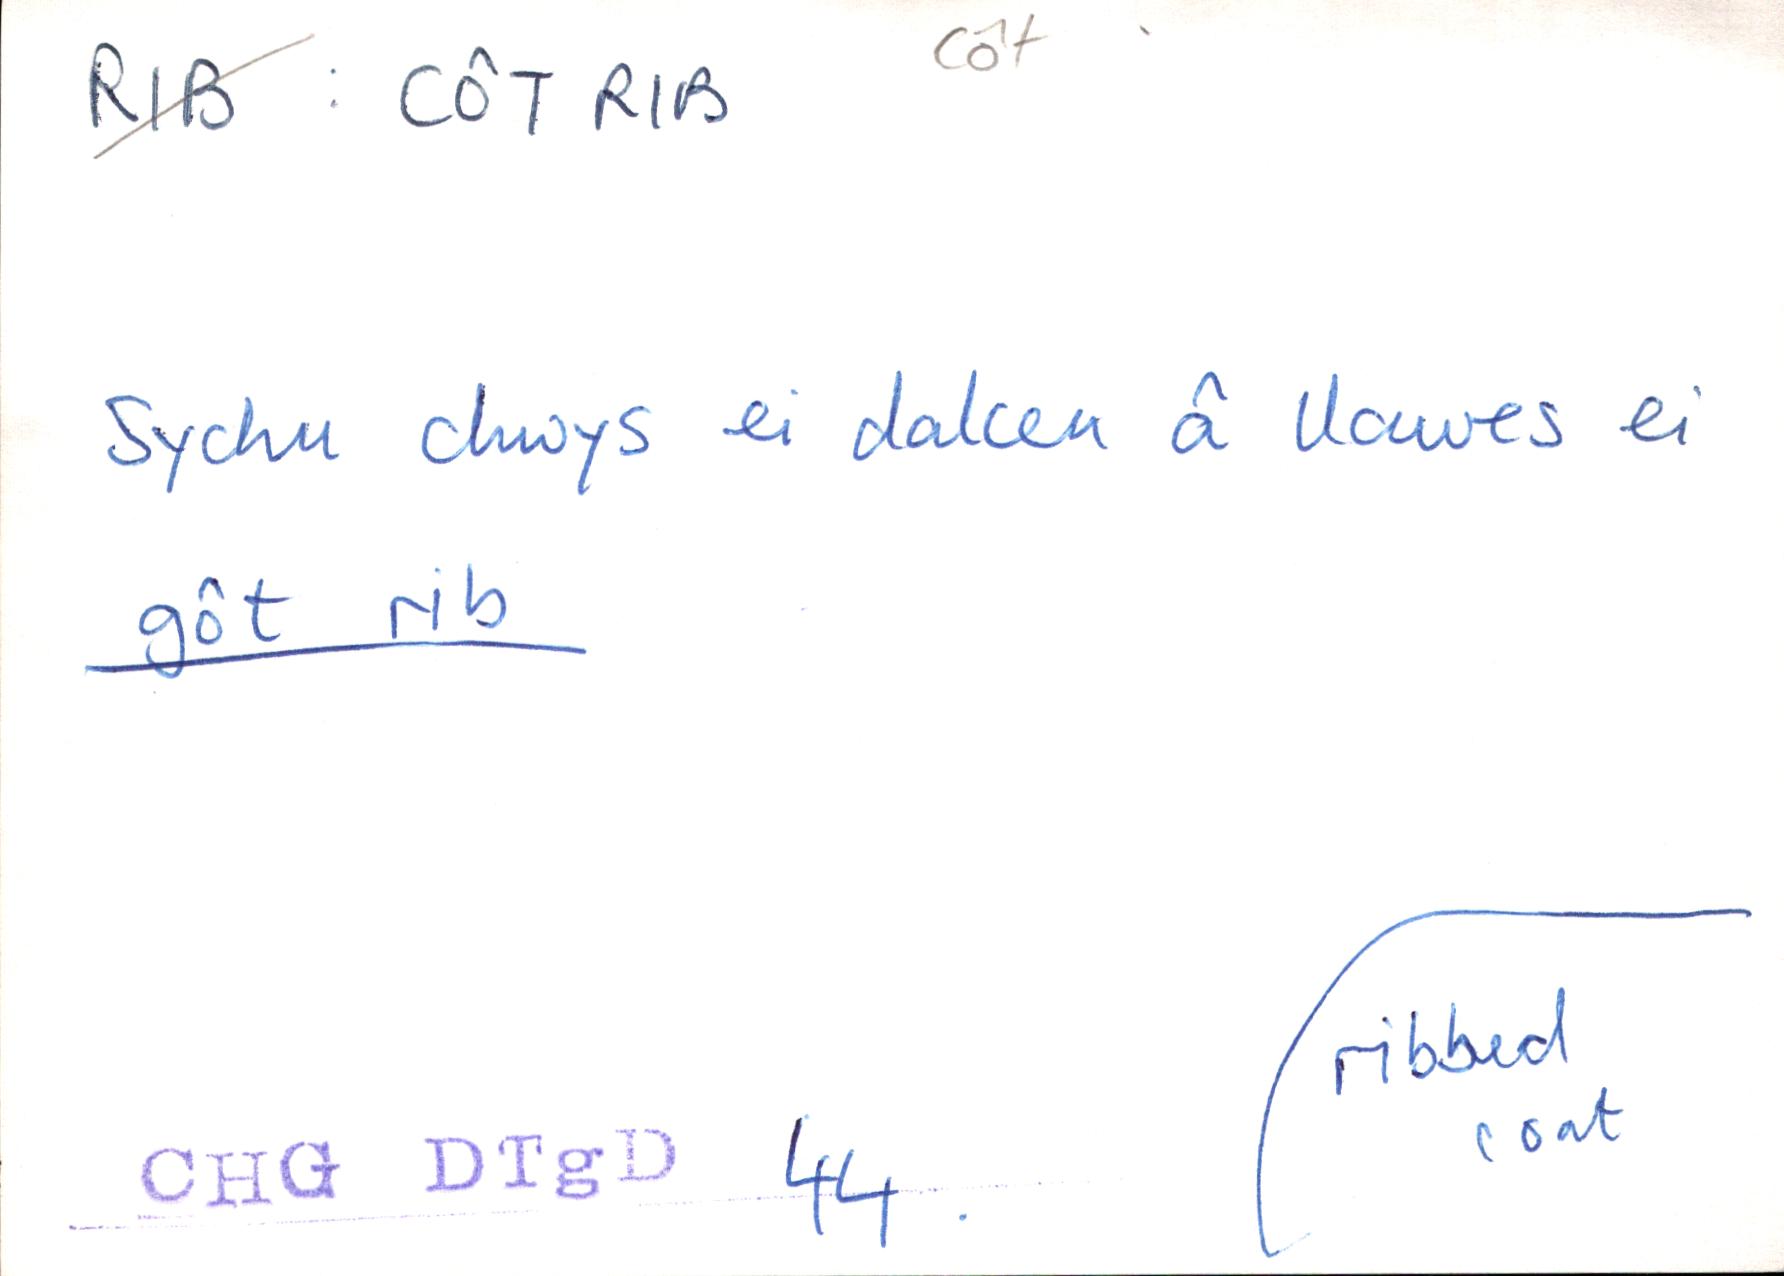 RIB : CÔT RIB
côt
Sychu chwys ei dalcen â llawes ei
gôt rib
ribbed
coat
CHG DTgD 44.